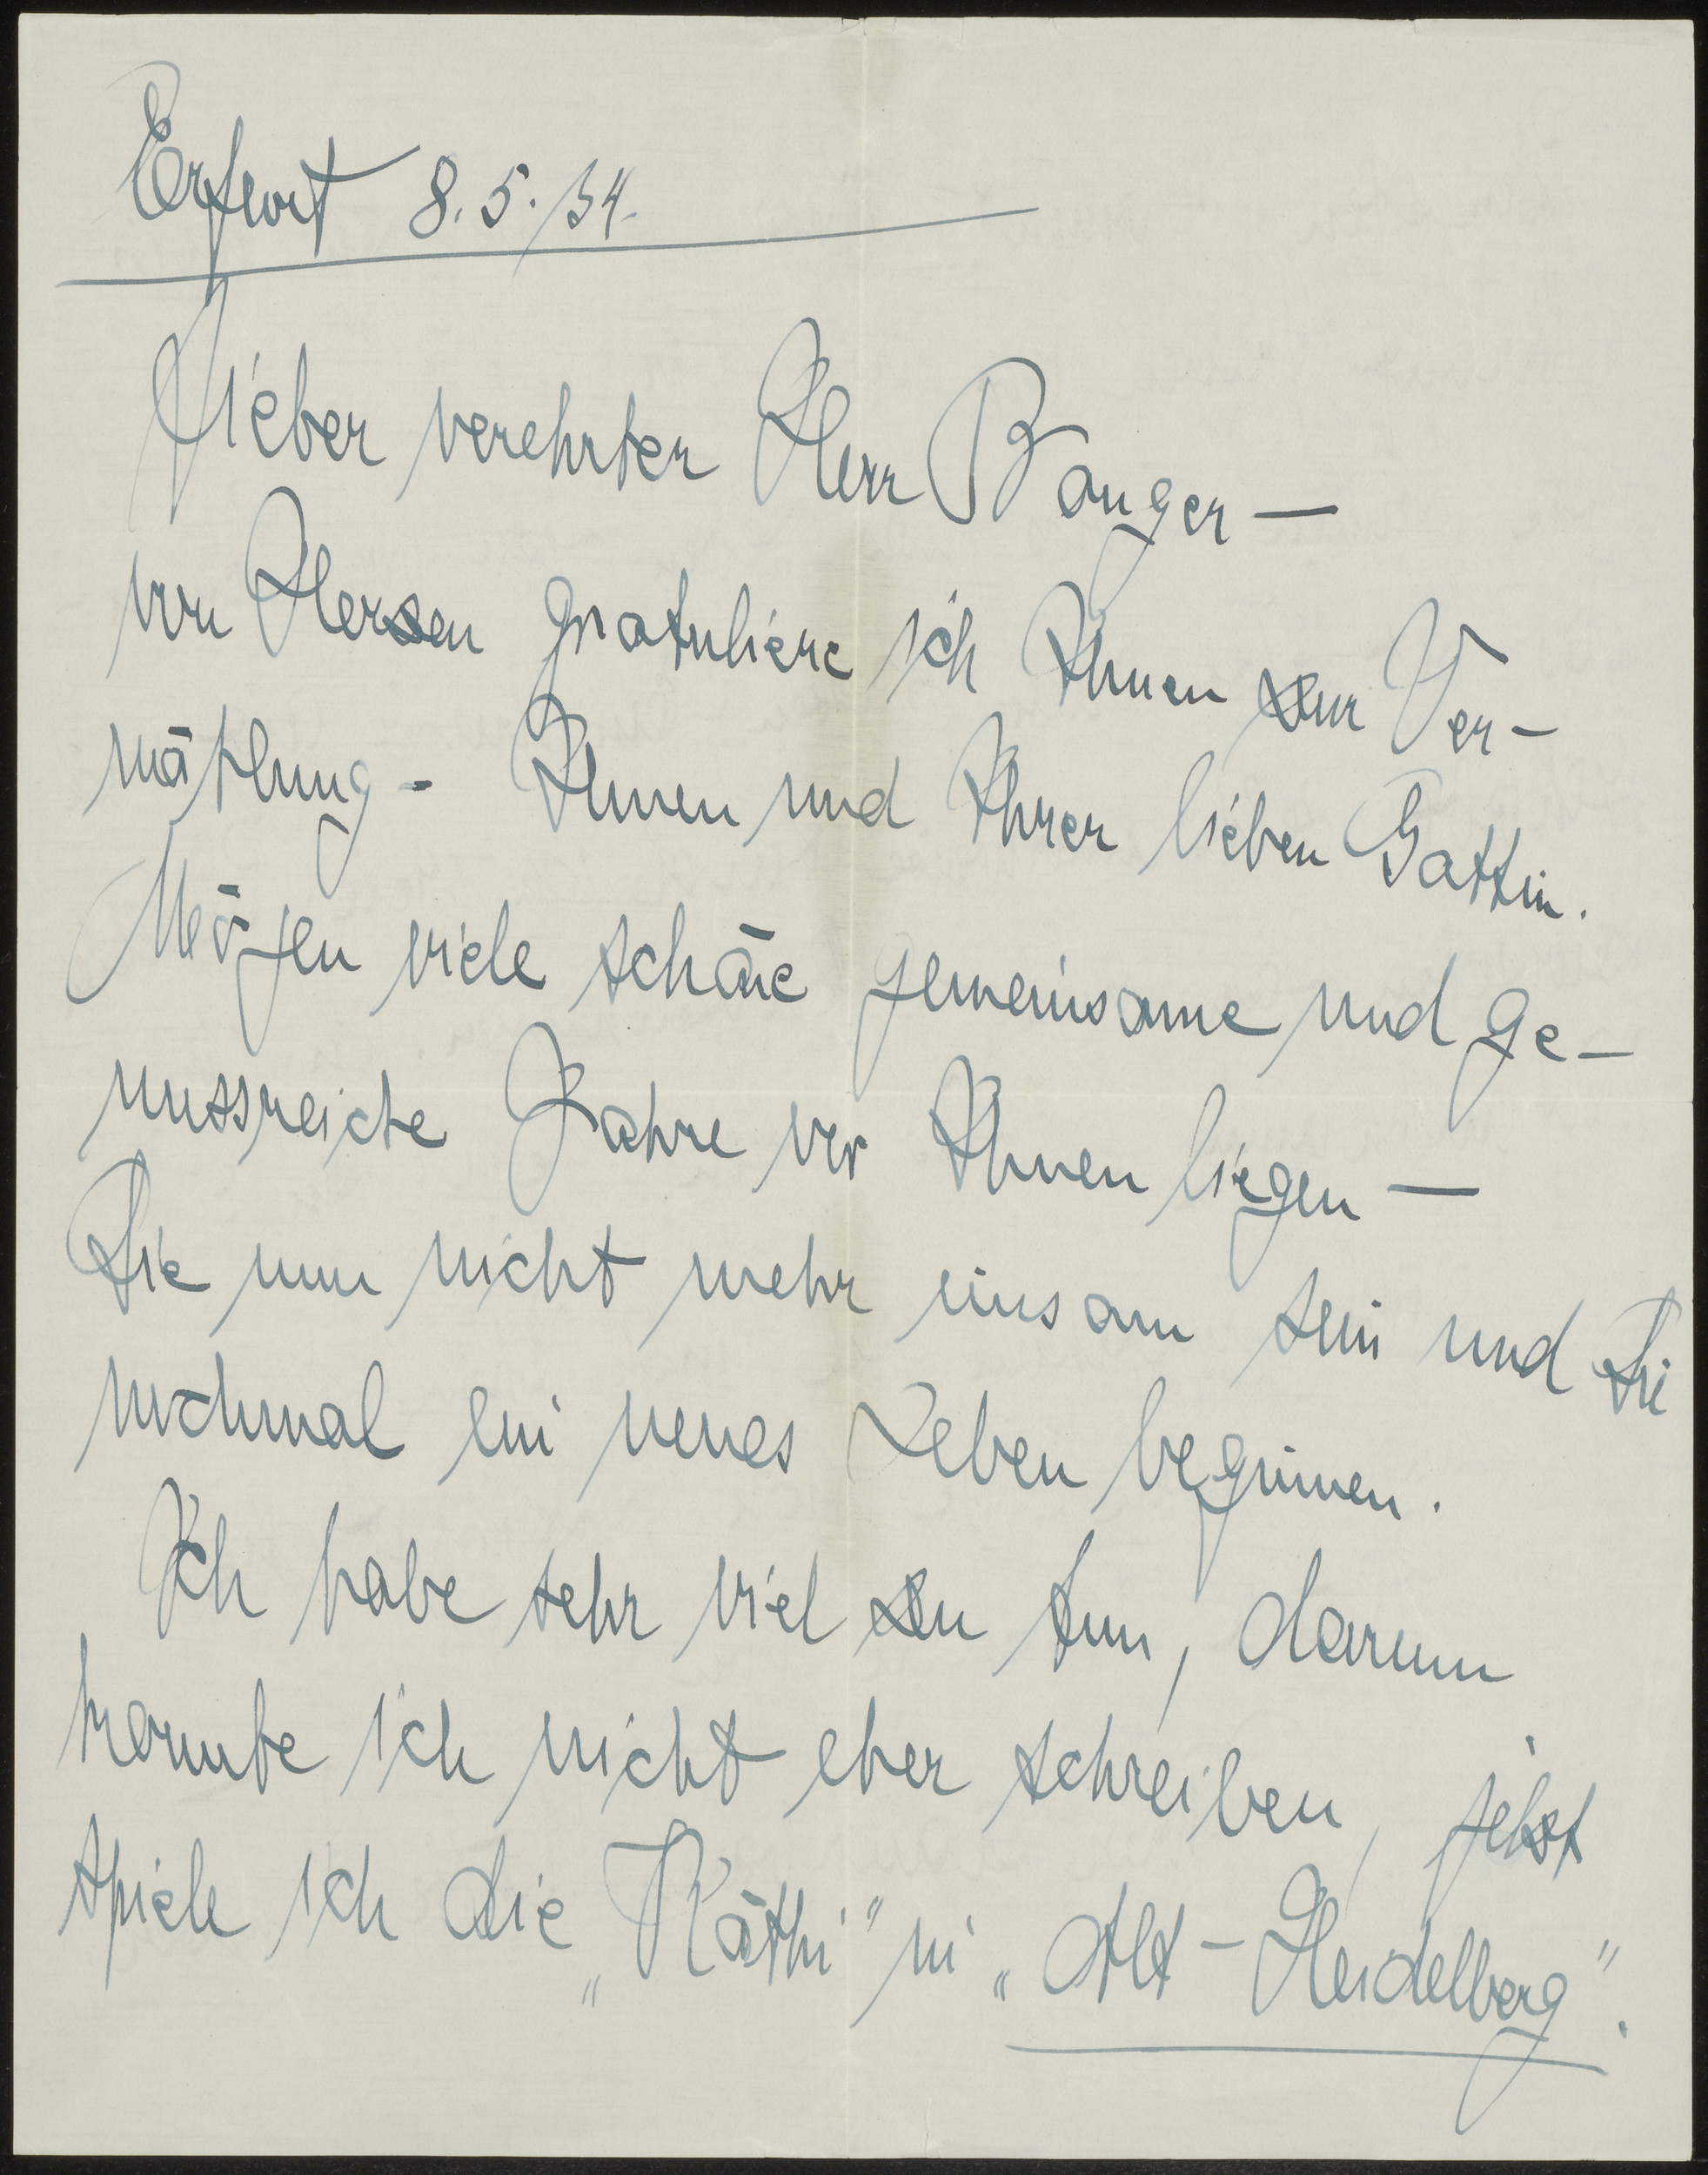 Erfurt 8.5./34.
Lieber verehrter Herr Banger —
von Herzen gratuliere ich Ihnen zur Ver-
mählung - Ihnen und Ihrer lieben Gattin.
Mögen viele schöne gemeinsame und ge-
nussreiche Jahre vor Ihnen liegen —
Sie nun nicht mehr einsam sein und Sie
nochmal ein neues Leben beginnen.
Ich habe sehr viel zu tun, darum
konnte ich nicht eher schreiben, jetzt
spiele ich die „Käthi" in „Alt-Heidelberg".